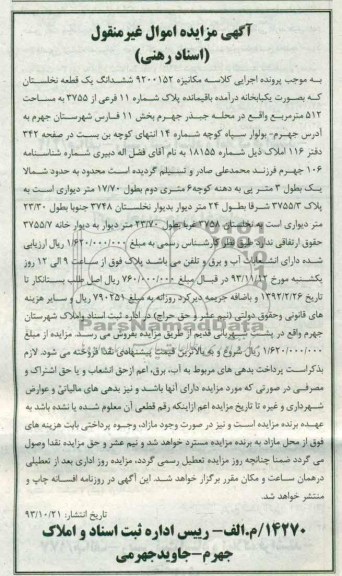 آگهی مزایده اموال غیرمنقول
(اسناد رهنی)
به موجب پرونده اجرایی کلاسه مکانیزه ۹۲۰۰۱۵۲ ششدانگ یک قطعه نخلستان
که بصورت یکبابخانه درآمده باقیمانده پلاک شماره ۱۱ فرعی از ۳۷۵۵ به مساحت
۵۱۲ مترمربع واقع در محله جیذر جهرم بخش ۱۱ فارس شهرستان جهرم به
آدرس جهرم- بولوار سپاه کوچه شماره ۱۴ انتهای کوچه بن بست در صفحه ۳۴۲
دفتر ۱۱۶ املاک ذیل شماره ۱۸۱۵۵ به نام آقای فضل اله دبیری شماره شناسنامه
۱۰۶ جهرم فرزند محمدعلی صادر و تسلیم گردیده است محدود به حدود شمالا
یک بطول ۳ متر پی به دهنه کوچه۶ متری دوم بطول ۱۷/۷۰ متر دیواری است به
پلاک ۳۷۵۵/۳ شرقا بطول ۲۴ متر دیوار بدیوار نخلستان ۳۷۴۸ جنوبا بطول ۲۳/۳۰
متر دیواری است به نخلستان ۳۷۵۸ غربا بطول ۲۳/۷۰ متر دیوار به دیوار خانه ۳۷۵۵/۷
حقوق ارتفاقی ندارد طبق نظر کارشناس رسمی به مبلغ ۱/۶۲۰/۰۰۰/۰۰۰ ریال ارزیابی
شده دارای انشعابات آب و برق و تلفن می باشد پلاک فوق از ساعت ۹ الی ۱۲ روز
یکشنبه مورخ ۹۳/۱۱/۱۲ در قبال مبلغ ۷۶۰/۰۰۰/۰۰۰ ریال اصل طلب بستانکار تا
تاریخ ۱۳۹۲/۲/۲۶ و باضافه جریمه دیرکرد روزانه به مبلغ ۷۹۰۲۵۹ ریال و سایر هزینه
های قانونی وحقوق دولتی (نیم عشر و حق حراج) در اداره ثبت اسناد واملاک شهرستان
جهرم واقع در پشت شهربانی قدیم از طریق مزایده بفروش می رسد. مزایده از مبلغ
۱/۶۲۰/۰۰۰/۰۰۰ ریال شروع و به بالاترین قیمت پیشنهادی نقدا فروخته می شود. لازم
بذکراست پرداخت بدهی های مربوط به آب، برق، اعم ازحق انشعاب و یا حق اشتراک و
مصرفی در صورتی که مورد مزایده دارای آنها باشد و نیز بدهی های مالیاتی و عوارض
شهرداری و غیره تا تاریخ مزایده اعم ازاینکه رقم قطعی آن معلوم شده یا نشده باشد به
عهده برنده مزایده است و نیز در صورت وجود مازاد، وجوه پرداختی بابت هزینه های
فوق از محل مازاد به برنده مزایده مسترد خواهد شد و نیم عشر و حق مزایده نقدا وصول
می گردد ضمنا چنانچه روز مزایده تعطیل رسمی گردد، مزایده روز اداری بعد از تعطیلی
درهمان ساعت و مکان مقرر برگزار خواهد شد. این آگهی در روزنامه افسانه چاپ و
منتشر خواهد شد.
تاریخ انتشار: ۹۳/۱۰/۲۱
۱۴۲۷۰/م.الف- رییس اداره ثبت اسناد و املاک
جهرم-جاویدجهرمی
ParsNamadData